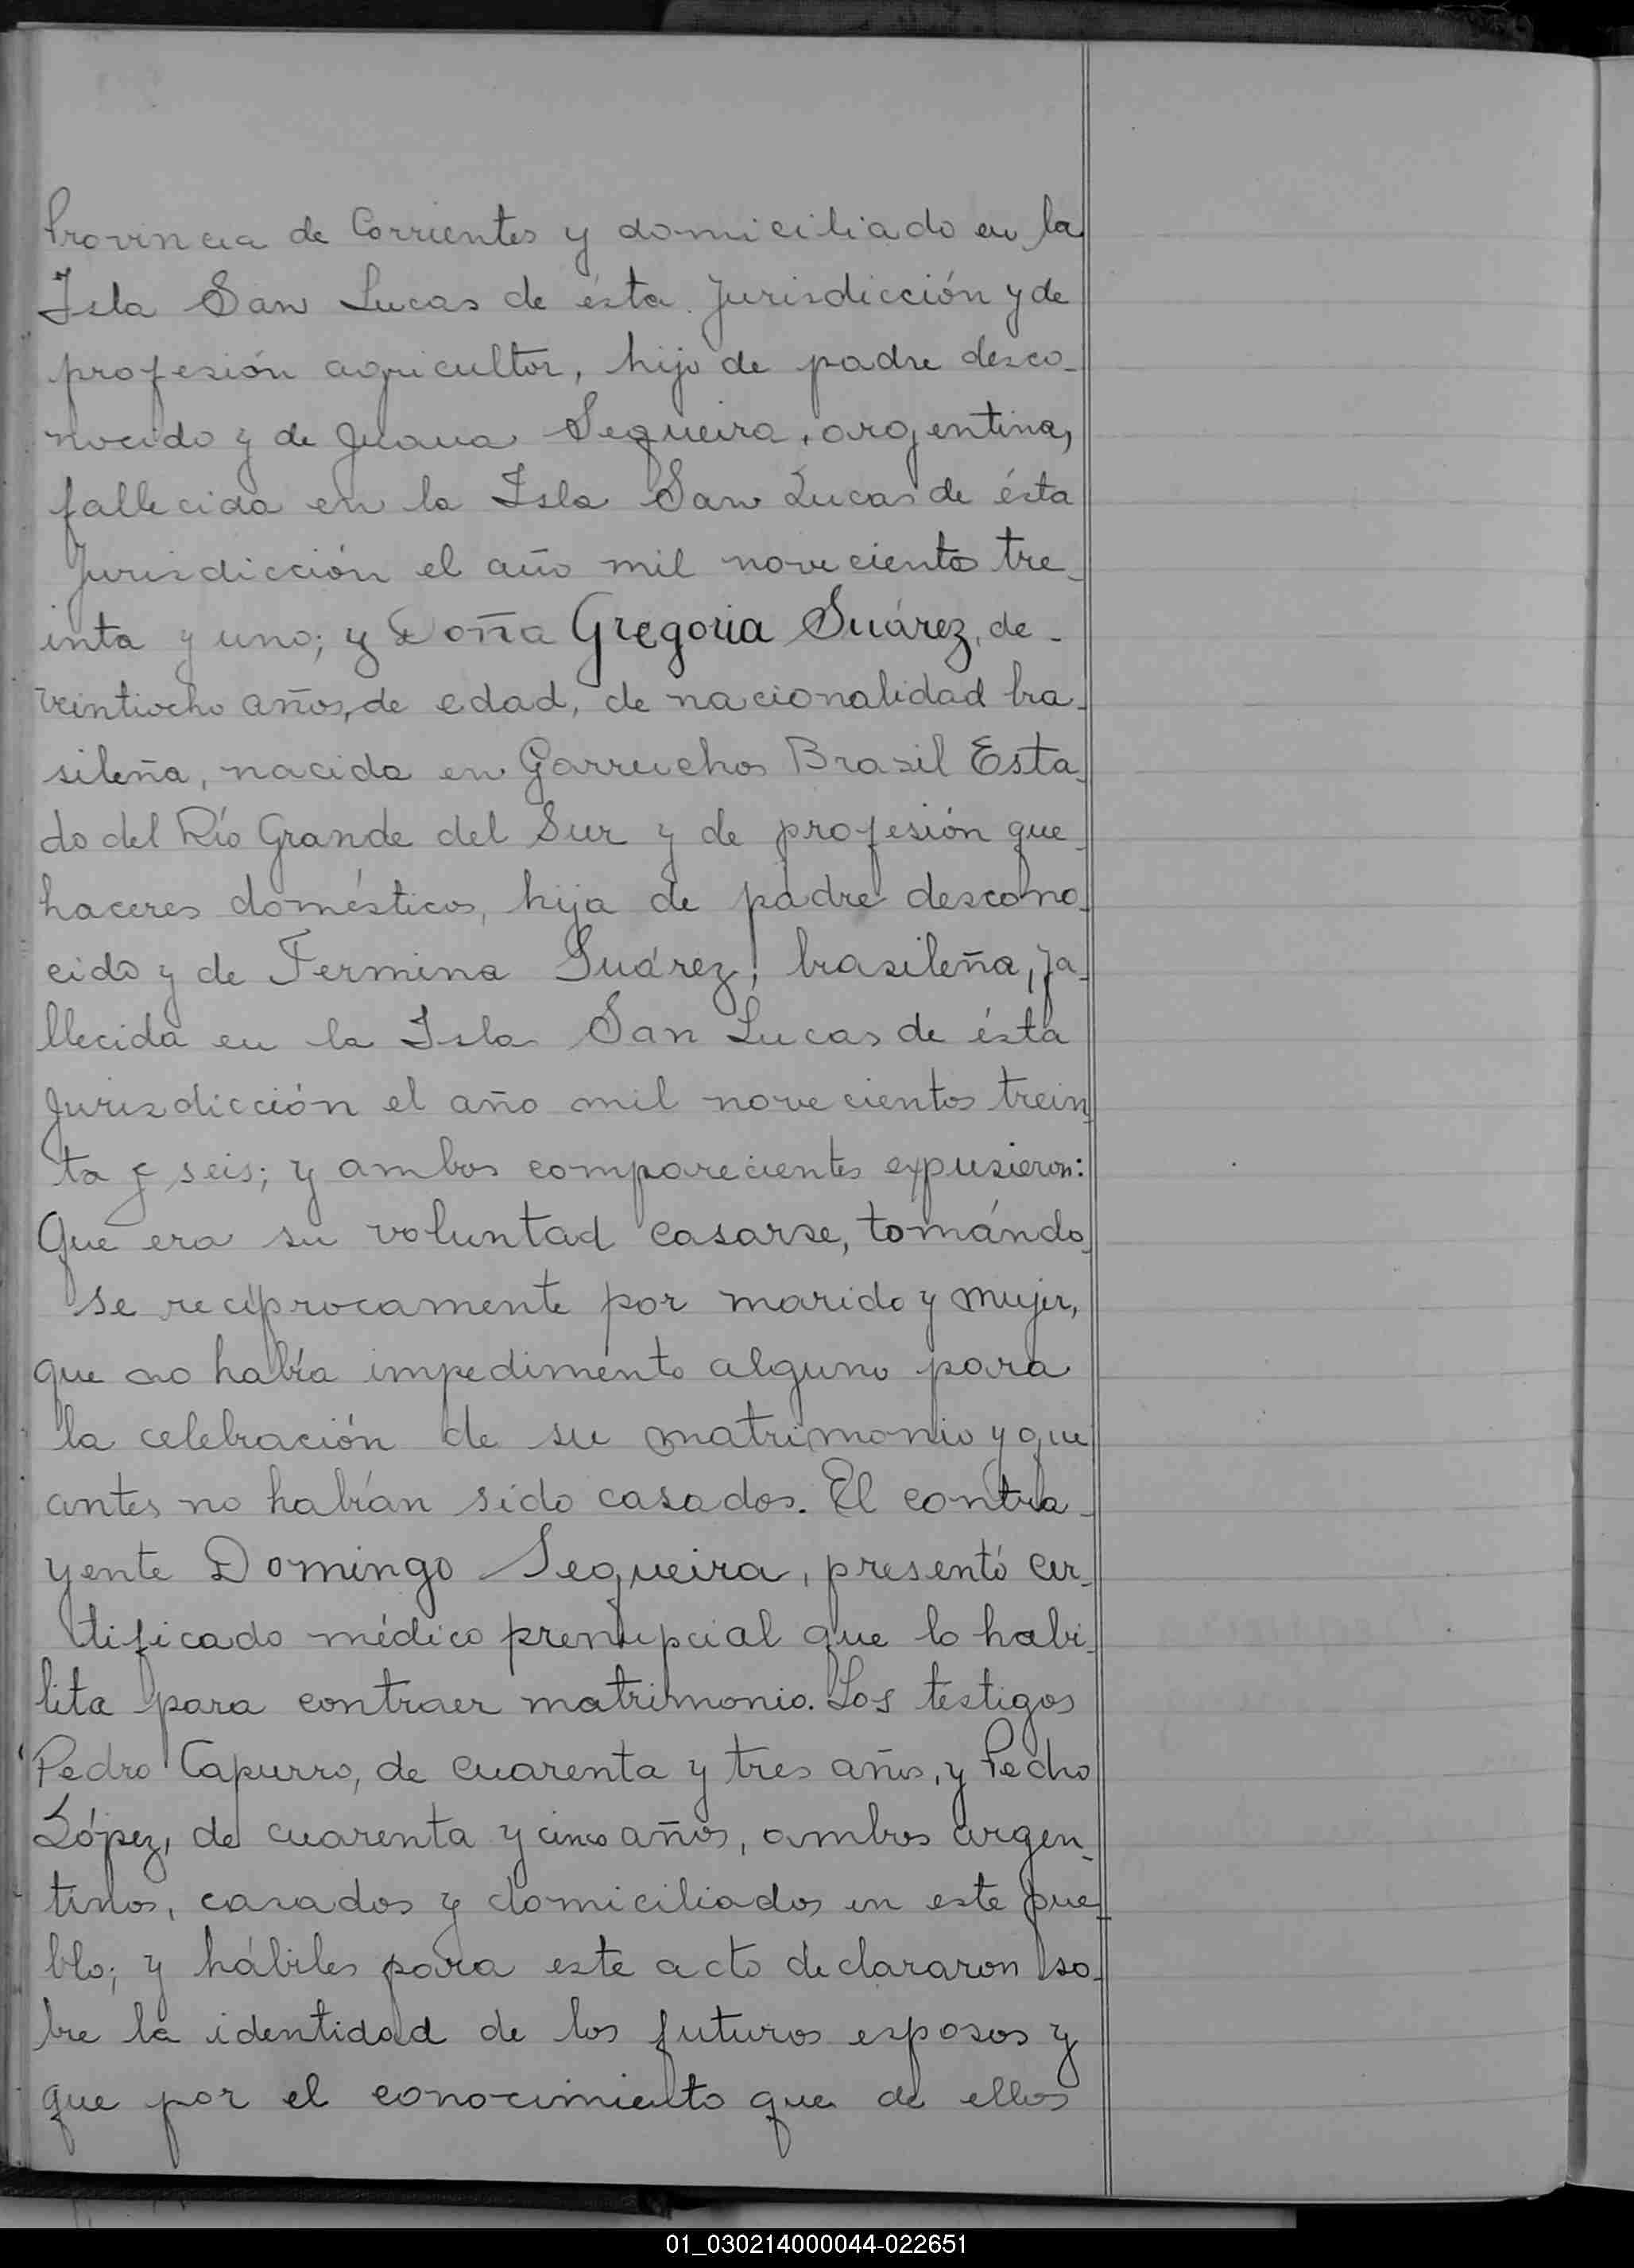 Provincia de Corrientes y domiciliado en la
Isla San Lucas de ésta Jurisdicción y de
profesión agricultor, hijo de padre desco-
nocido y de Juana Sequeira, argentina,
fallecida en la Isla San Lucas de ésta
Jurisdicción el año mil novecientos tre-
inta y uno; y Doña Gregoria Suárez, de-
veintiocho años, de edad, de nacionalidad bra-
sileña, nacida en Garruchos Brasil Esta-
do del Río Grande del Sur y de profesión que-
haceres domésticos, hija de padre descono-
cido y de Fermina Suárez, brasileña, fa-
llecida en la Isla San Lucas de ésta
Jurisdicción el año mil novecientos trein
ta y seis; y ambos comparecientes expusieron:
Que era su voluntad casarse, tomándo
se recíprocamente por marido y mujer,
que no había impedimento alguno para
la celebración de su matrimonio y que
antes no habían sido casados. El contra-
yente Domingo Sequeira, presentó cer-
tificado médico prenupcial que lo habi-
lita para contraer matrimonio. Los testigos
Pedro Capurro, de cuarenta y tres años, y Pedro
López, de cuarenta y cinco años, ambos argen-
tinos, casados y domiciliados en este pue-
blo; y hábiles para este acto declararon so-
bre la identidad de los futuros esposos y
que por el conocimiento que de ellos
01_030214000044-022651